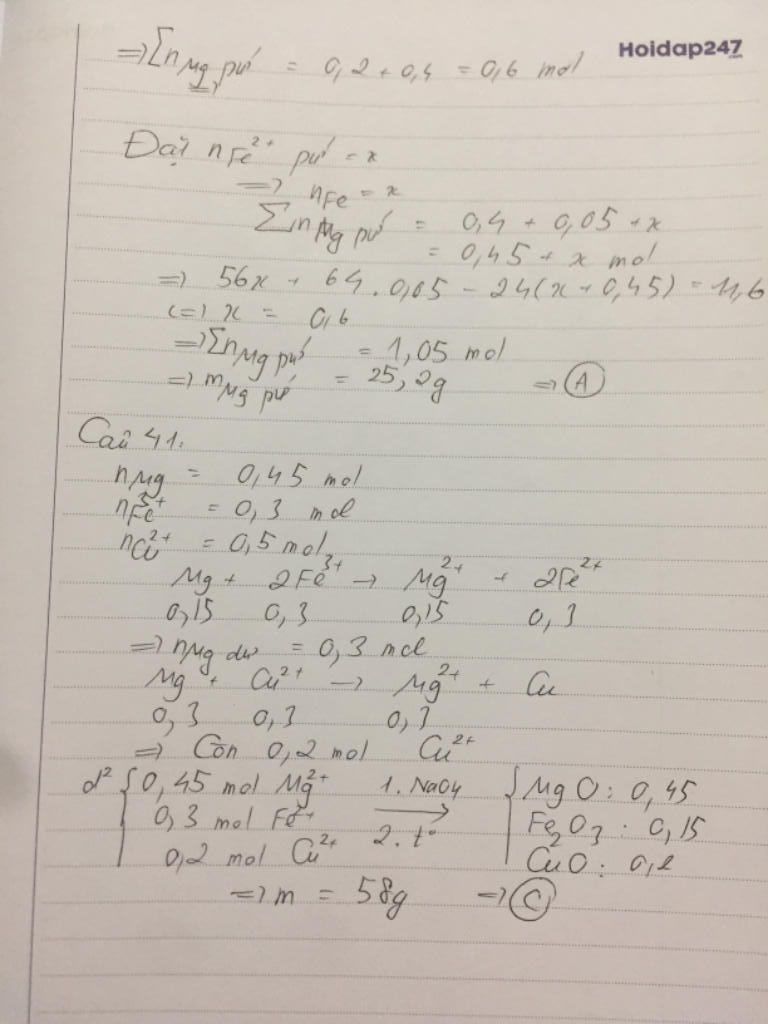 Hoidap247
.com
=> ∑n Mg pứ = 0,2 + 0,4 = 0,6 mol
Đặt n Fe²⁺ pứ = x
=> n Fe = x
∑n Mg pứ = 0,4 + 0,05 + x
= 0,45 + x mol
=> 56x + 64.0,05 - 24(x + 0,45) = 11,6
<=> x = 0,6
=> ∑n Mg pứ = 1,05 mol
=> m Mg pứ = 25,2g => (A)
Câu 41:
n Mg = 0,45 mol
n Fe³⁺ = 0,3 mol
n Cu²⁺ = 0,5 mol
Mg + 2Fe³⁺ -> Mg²⁺ + 2Fe²⁺
0,15 0,3 0,15 0,3
=> n Mg dư = 0,3 mol
Mg + Cu²⁺ -> Mg²⁺ + Cu
0,3 0,3 0,3
=> Còn 0,2 mol Cu²⁺
d² { 0,45 mol Mg²⁺ 1. NaOH { MgO : 0,45
0,3 mol Fe²⁺ -> Fe₂O₃ : 0,15
0,2 mol Cu²⁺ 2. t° CuO : 0,2
=> m = 58g => (C)